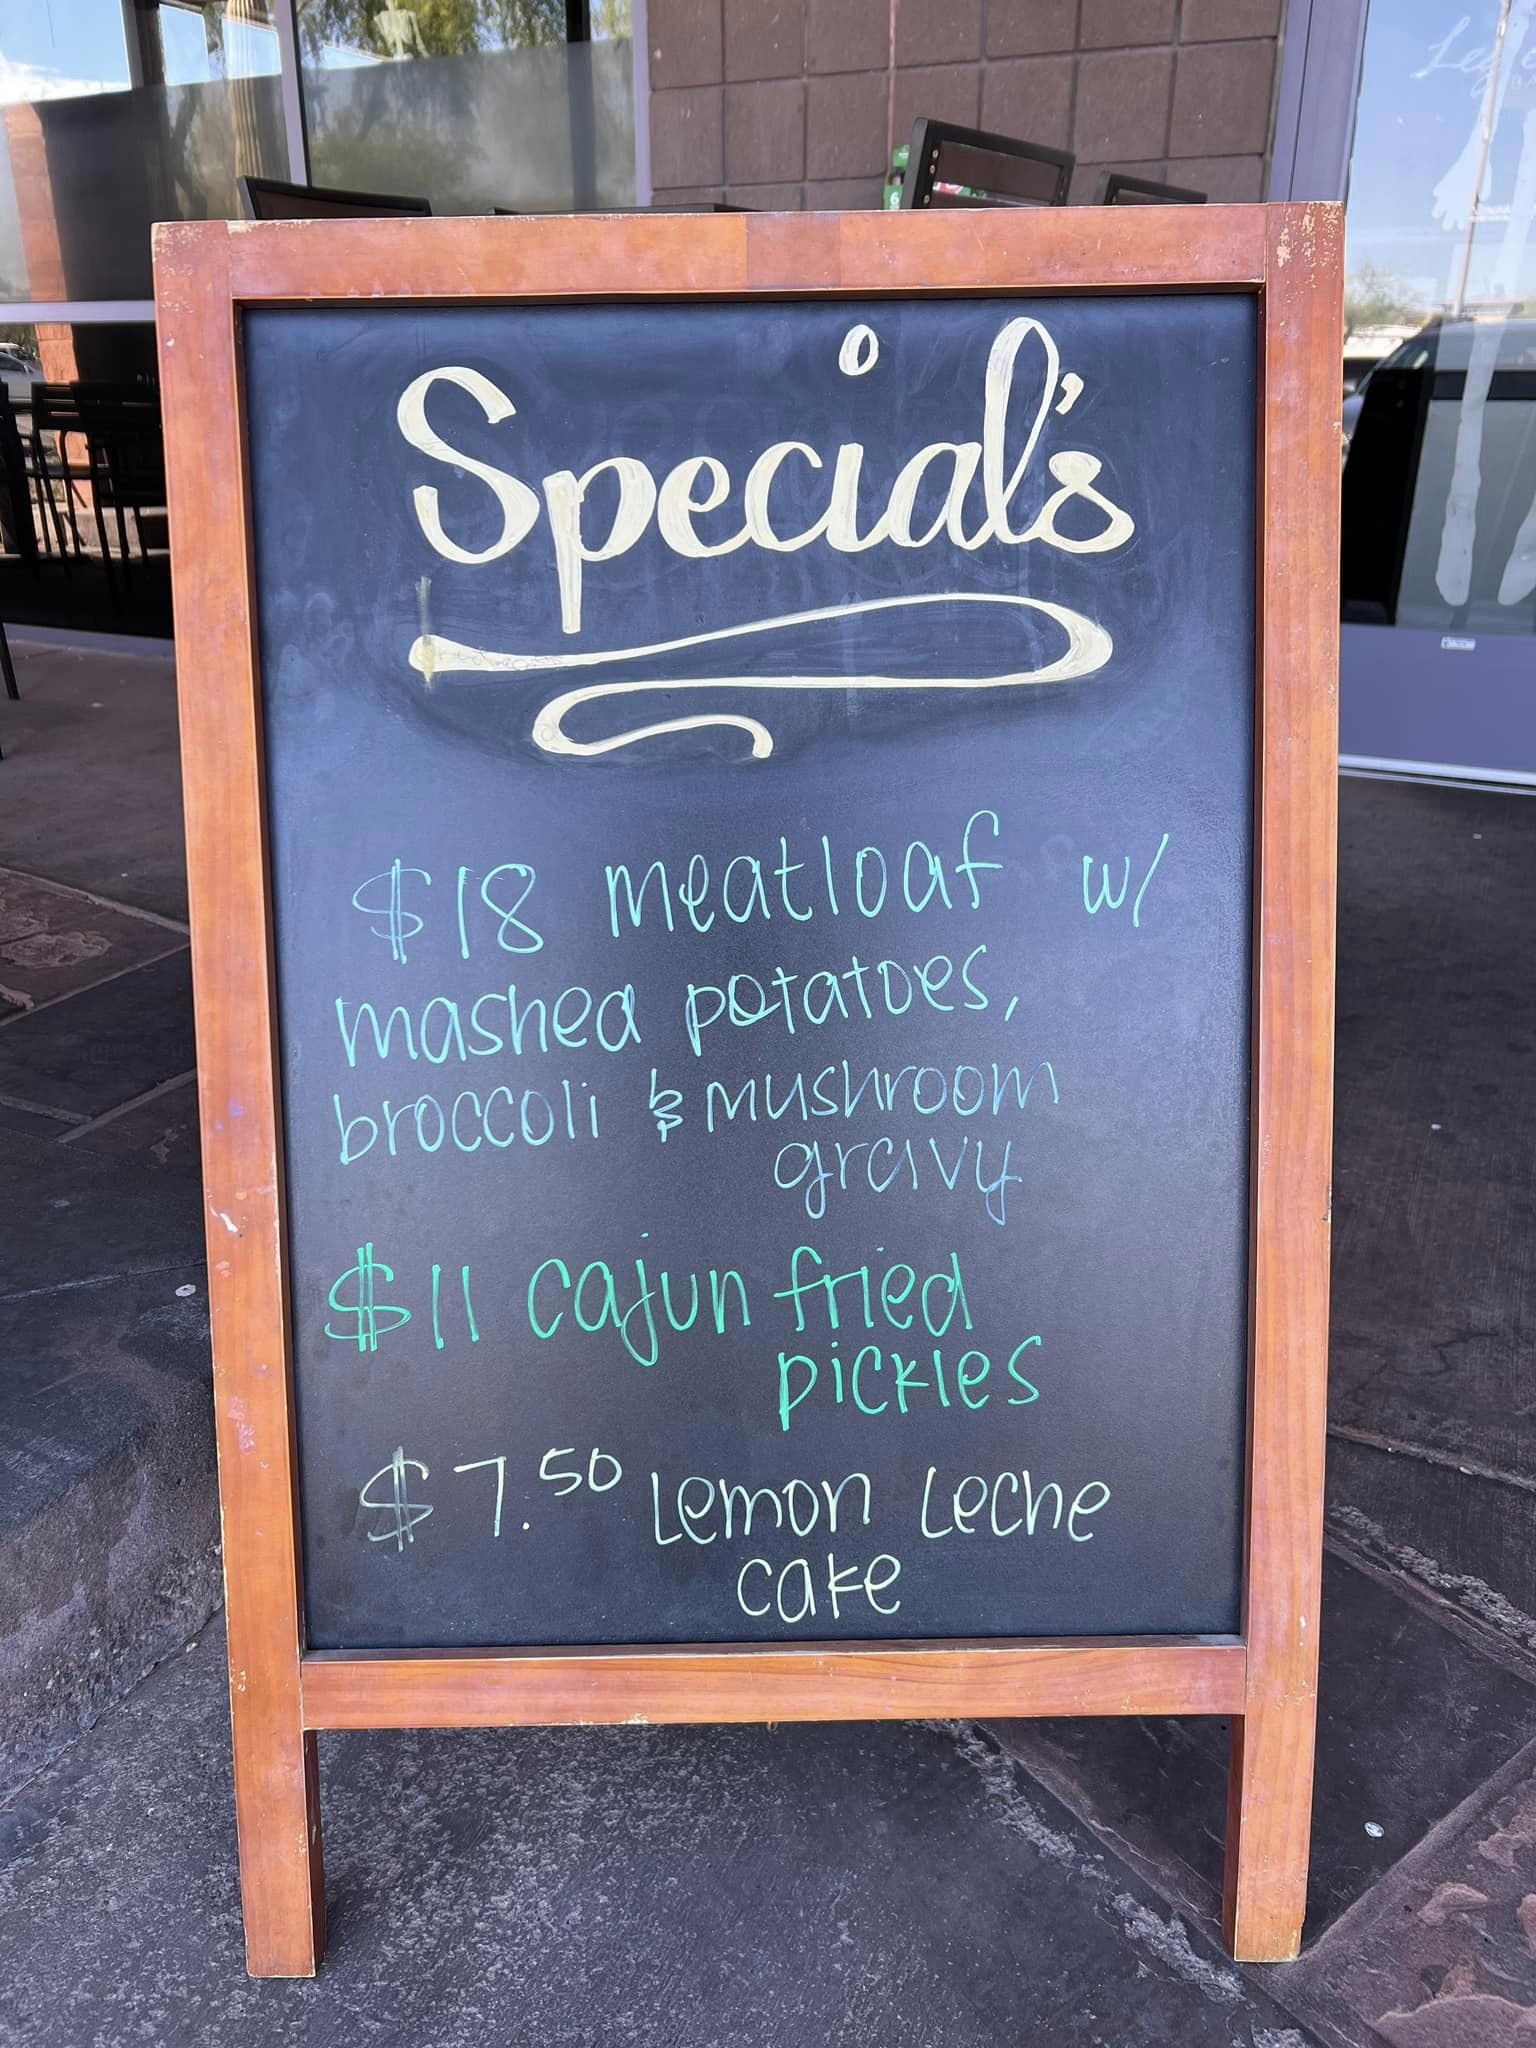 Special's
$18 meatloaf w/
mashed potatoes,
broccoli & mushroom
gravy
$11 cajun fried
pickles
$7.50 Lemon Leche
cake